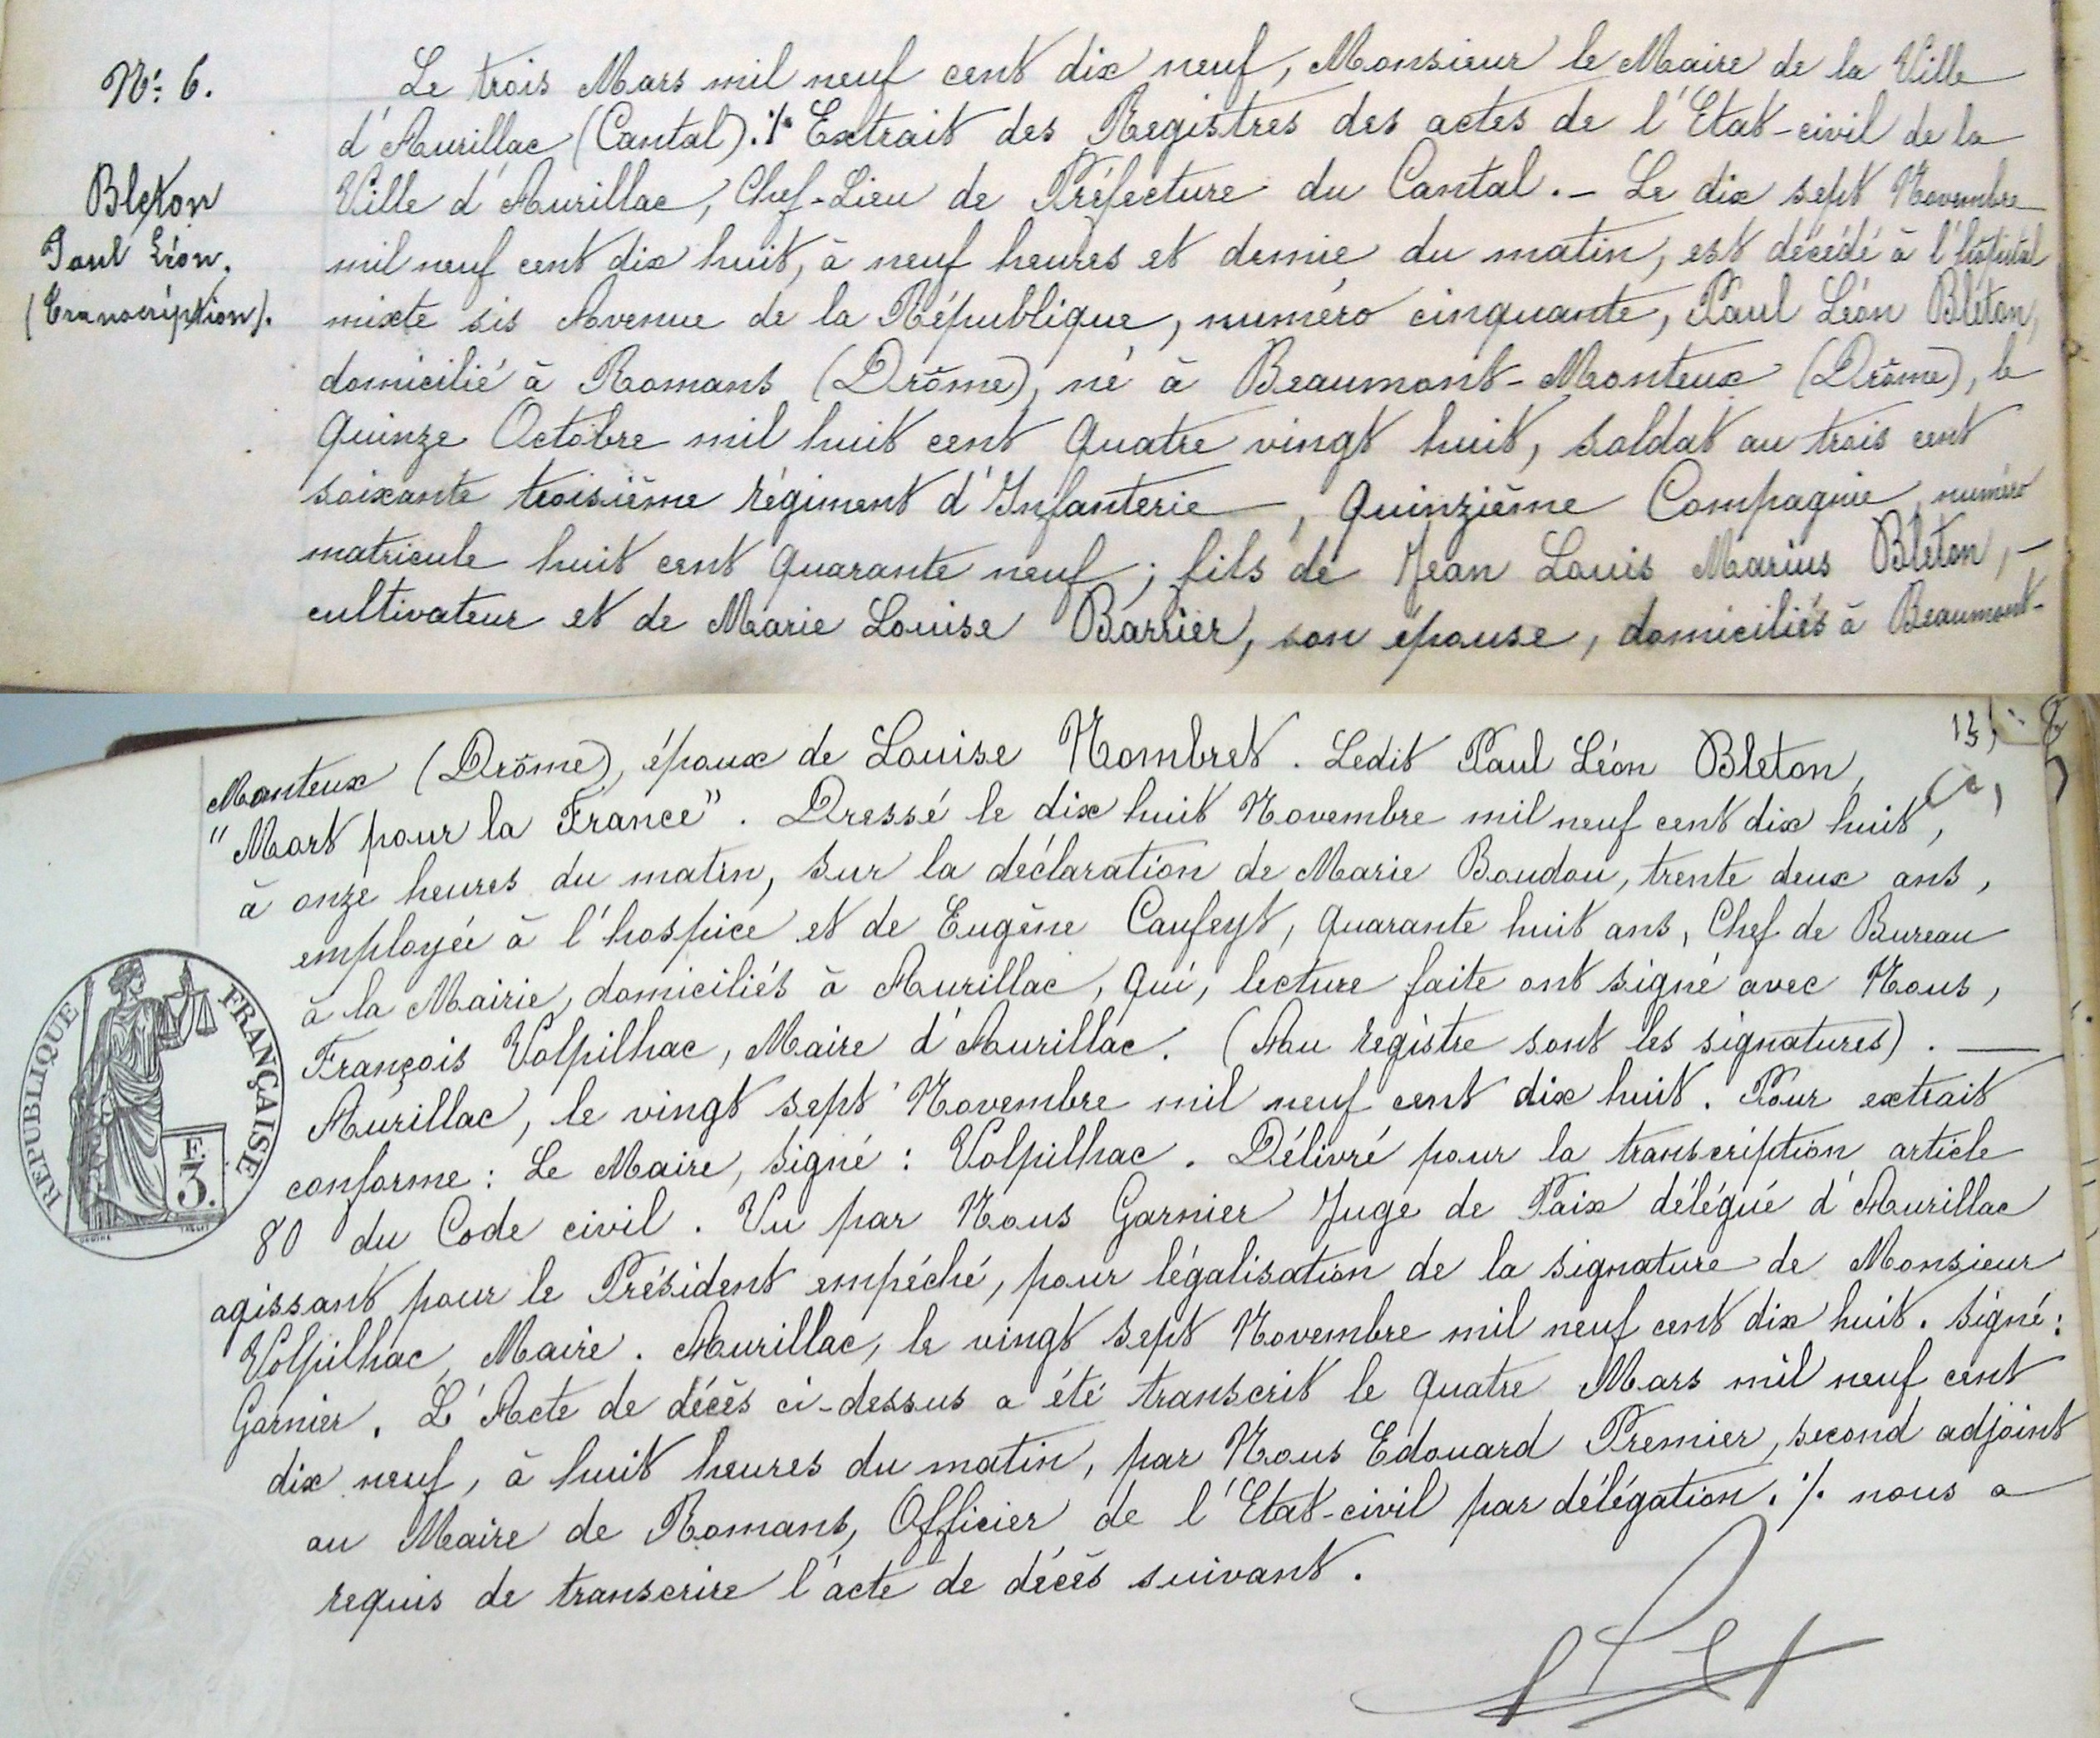 N°: 6.
Bleton
Paul Léon.
(Transcription).
Le trois Mars mil neuf cent dix neuf, Monsieur le Maire de la Ville
d'Aurillac (Cantal)./. Extrait des Registres des actes de l'Etat-civil de la
Ville d'Aurillac, Chef-Lieu de Préfecture du Cantal. – Le dix sept Novembre
mil neuf cent dix huit, à neuf heures et demie du matin, est décédé à l'hôpital
mixte sis Avenue de la République, numéro cinquante, Paul Léon Bleton,
domicilié à Romans (Drôme), né à Beaumont-Monteux (Drôme), le
quinze Octobre mil huit cent quatre vingt huit, soldat au trois cent
soixante troisième régiment d'Infanterie, quinzième Compagnie, numéro
matricule huit cent quarante neuf ; fils de Jean Louis Marius Bleton, –
cultivateur et de Marie Louise Barrier, son épouse, domiciliés à Beaumont-
Monteux (Drôme), époux de Louise Nombret. Ledit Paul Léon Bleton,
"Mort pour la France". Dressé le dix huit Novembre mil neuf cent dix huit,
à onze heures du matin, sur la déclaration de Marie Boudou, trente deux ans,
employée à l'hospice et de Eugène Caufeyt, quarante huit ans, Chef de Bureau
à la Mairie, domiciliés à Aurillac, qui, lecture faite ont signé avec Nous,
François Volpilhac, Maire d'Aurillac. (Au registre sont les signatures). —
Aurillac, le vingt sept Novembre mil neuf cent dix huit. Pour extrait
conforme : Le Maire, signé : Volpilhac. Délivré pour la transcription article
80 du Code civil. Vu par Nous Garnier Juge de Paix délégué d'Aurillac
agissant pour le Président empêché, pour légalisation de la signature de Monsieur
Volpilhac, Maire. Aurillac, le vingt sept Novembre mil neuf cent dix huit. signé :
Garnier. L'Acte de décès ci-dessus a été transcrit le quatre Mars mil neuf cent
dix neuf, à huit heures du matin, par Nous Edouard Premier, second adjoint
au Maire de Romans, Officier de l'Etat-civil par délégation. /. nous a
requis de transcrire l'acte de décès suivant.
REPUBLIQUE FRANÇAISE
F.
3.